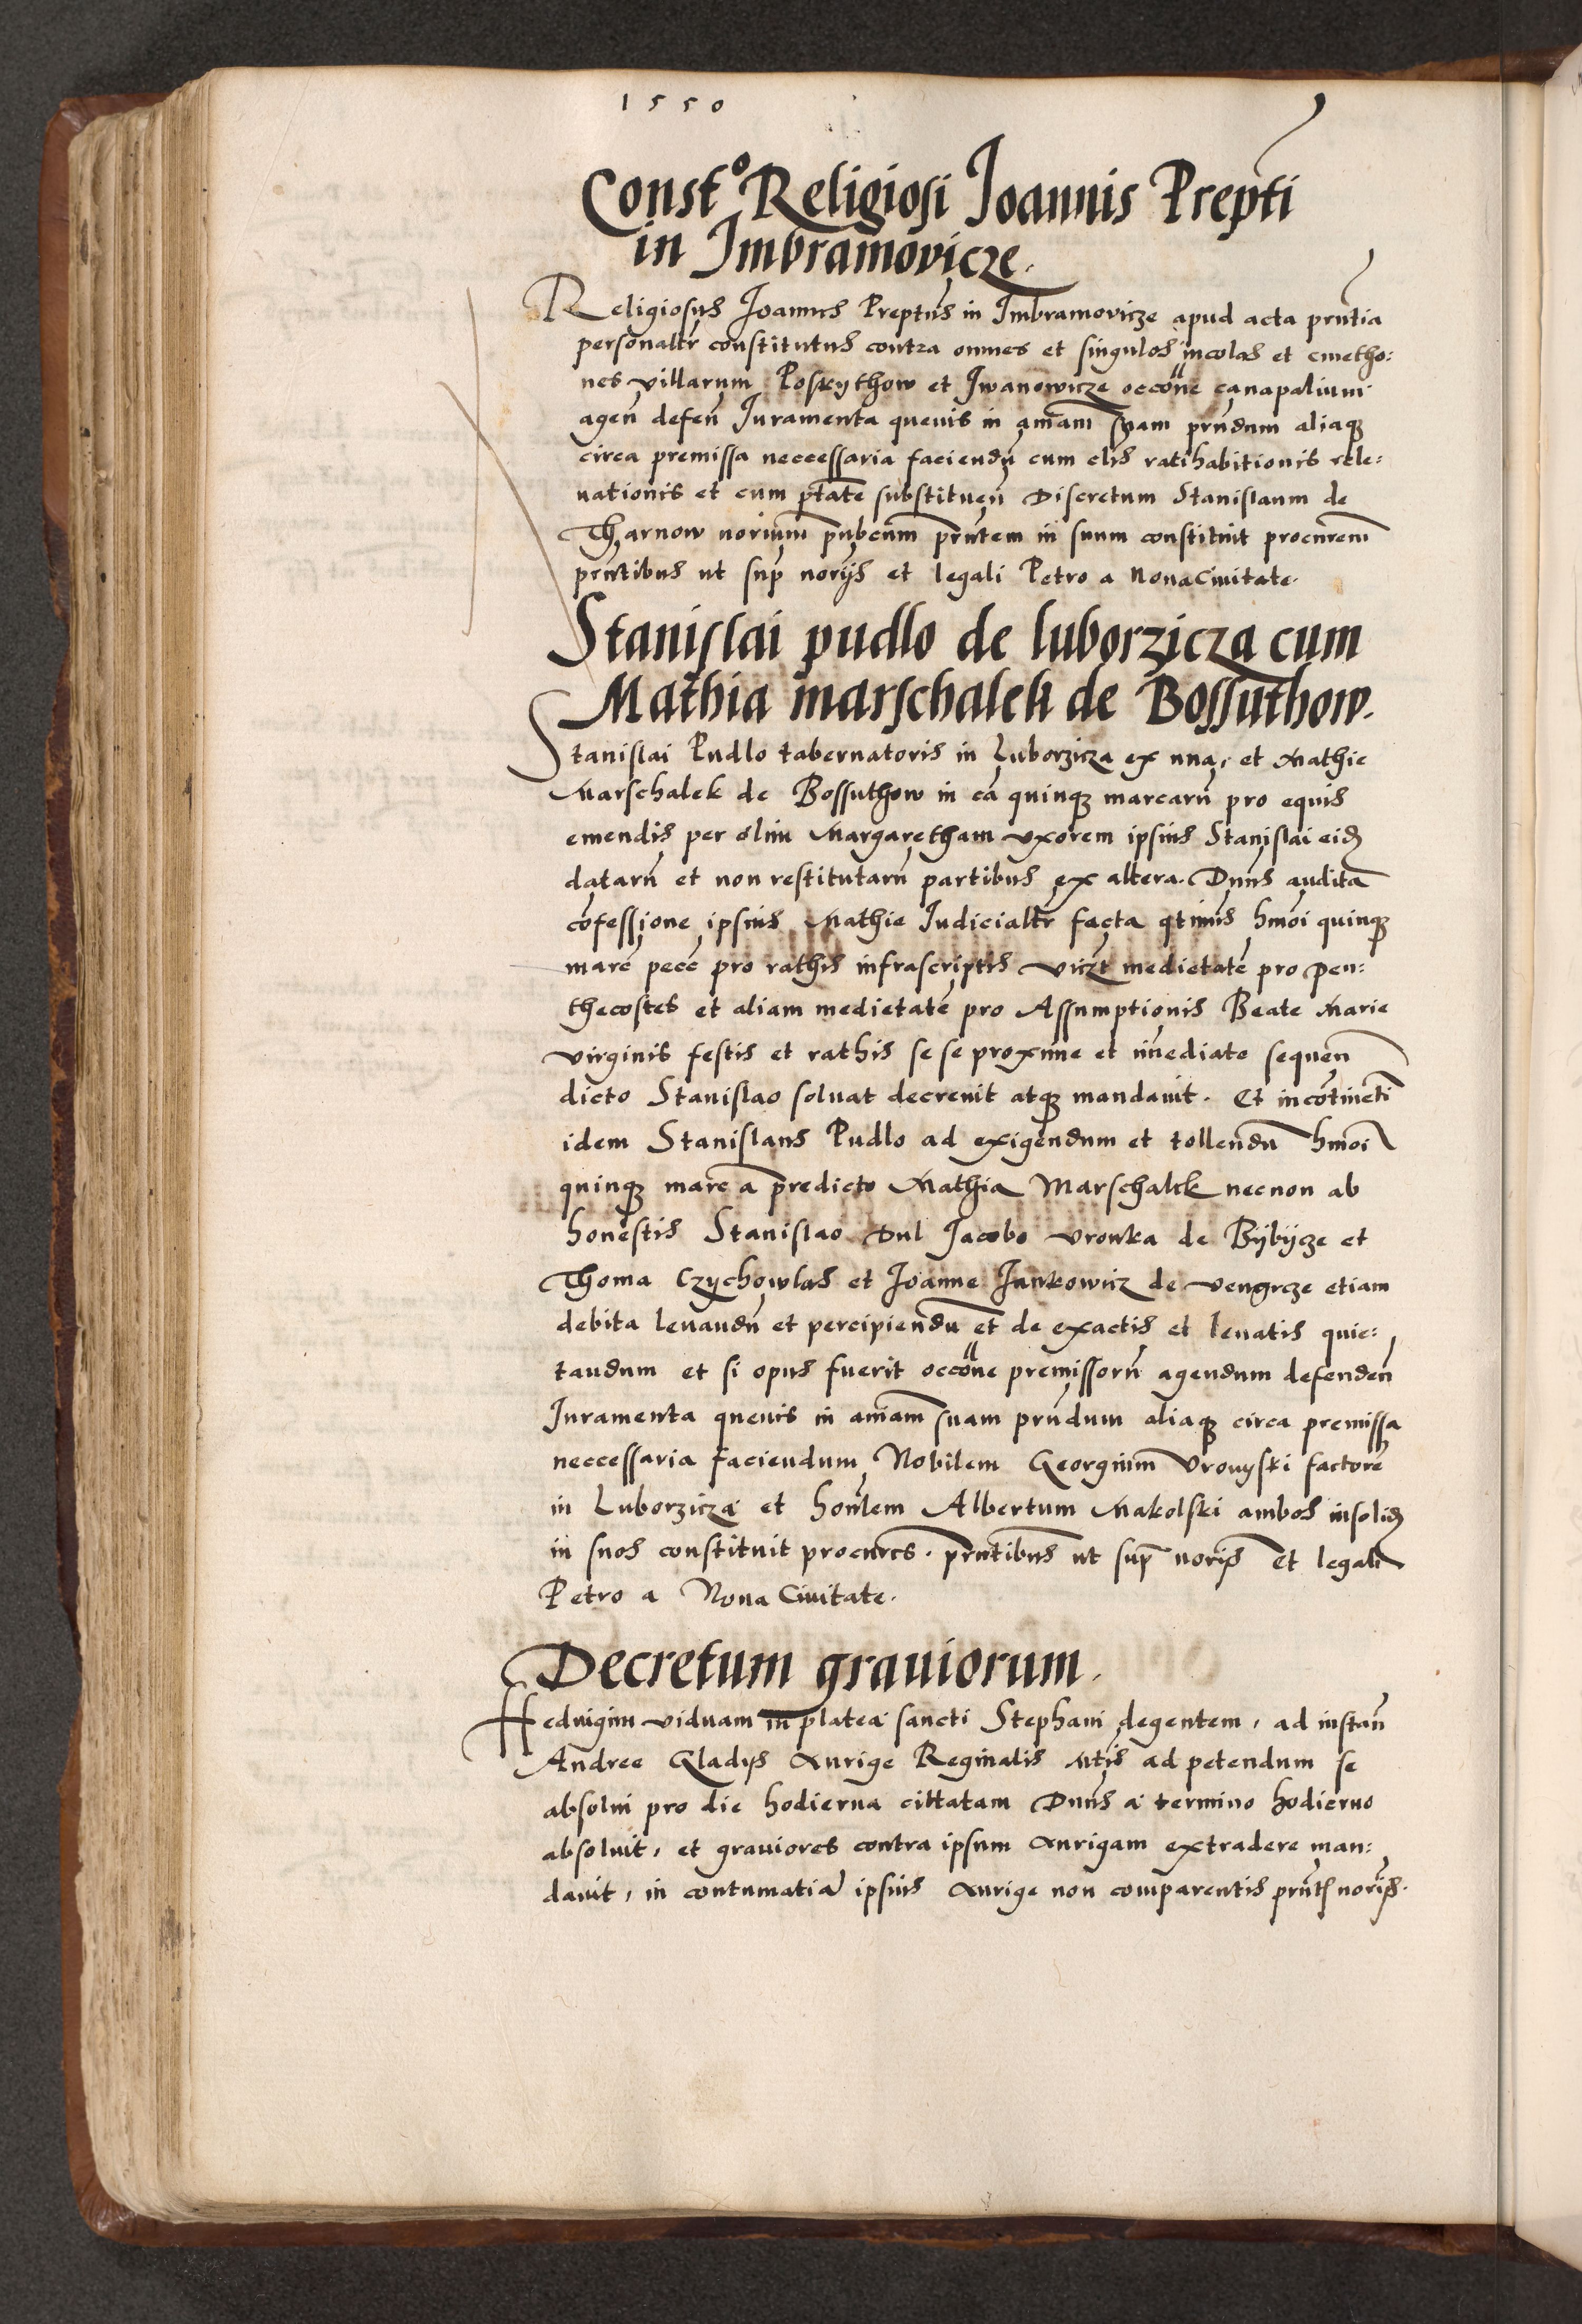 1550
Constº Religiosi Joannis Prep̃ti
in Imbramovicze.
Religiosus Joannes Prept̃us in Imbramovicze apud acta prñtia
personalr̃ constitutus contra omnes et singulos incolas et cmetho:
nes villarum Poskythow et Iwanowicze occõne canapalium
ageñ defeñ Juramenta quevis in añiam suam prñdum aliaqꝫ
circa premissa neccessaria faciendũ cum clis ratihabitionis rele:
vationis et cum ptãte substitueñ Discretum Stanislaum de
Tharnow noriũm pubcũm prñtem in suum constituit procurem̃
prñtibus ut sup̃ norijs et legali Petro a Nova Civitate.
Stanislai pudlo de luborzicza cum
Mathia marschalek de Bossuthow.
Stanislai Pudlo tabernatoris in Luborzicza ex una, et Mathie
Marschalek de Bossuthow in cã quinqꝫ marcarũ pro equis
emendis per olim Margaretham uxorem ipsius Stanislai eidꝫ
datarũ et non restitutarũ partibus ex altera. Dñus audita
cõfessione ipsius Mathie Judicialr̃ facta qtinus hmõi quinqꝫ
marc̃ pecẽ pro rathis infrascriptis viczt medietatẽ pro pen:
thecostes et aliam medietatẽ pro Assumptionis Beate Marie
virginis festis et rathis se se proxime et im̃ediate sequeñ
dicto Stanislao solvat decrevit atqꝫ mandavit. Et incõtinẽti
idem Stanislaus Pudlo ad exigendum et tollendũ hmõi
quinqꝫ marc̃ a predicto Mathia Marschalek necnon ab
honestis Stanislao Dul Jacobo Vronka de Bÿbÿcze et
Thoma Czychowlas et Joanne Jankowicz de Vengrcze etiam
debita levandũ et percipiendũ et de exactis et levatis quie:
tandum et si opus fuerit occõne premissorũ agendum defendeñ
Juramenta quevis in añiam suam prñdum aliaqꝫ circa premissa
neccessaria faciendum Nobilem Georgium Vronyski factorẽ
in Luborzicza et honl̃em Albertum Makolski ambos insolidꝫ
in suos constituit procures. prñtibus ut sup̃ norijs et legali
Petro a Nova Civitate.
Decretum graviorum.
Hedvigim viduam in platea sancti Stephani degentem, ad instañ
Andree Gladys Aurige Reginalis Mtis ad petendum se
absolvi pro die hodierna cittatam Dñus a termino hodierno
absolvit, et graviores contra ipsum Aurigam extradere man:
davit, in contumatiã ipsius Aurige non comparentis prñtꝭ norijs.